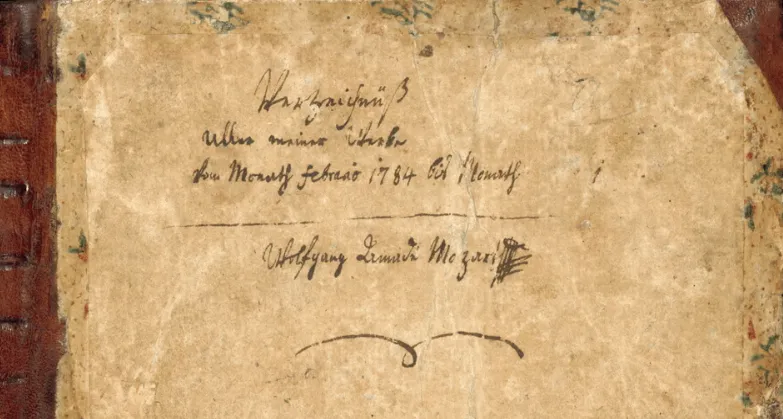 Verzeichnüß
aller meiner Werke
vom Monath febraio 1784 bis Monath 1
Wolfgang Amadé Mozart